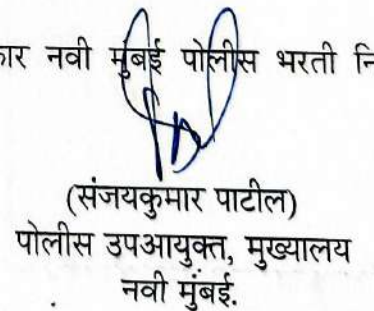 नवी मुंबई पोलीस भरती
(संजयकुमार पाटील)
पोलीस उपआयुक्त, मुख्यालय
नवी मुंबई.